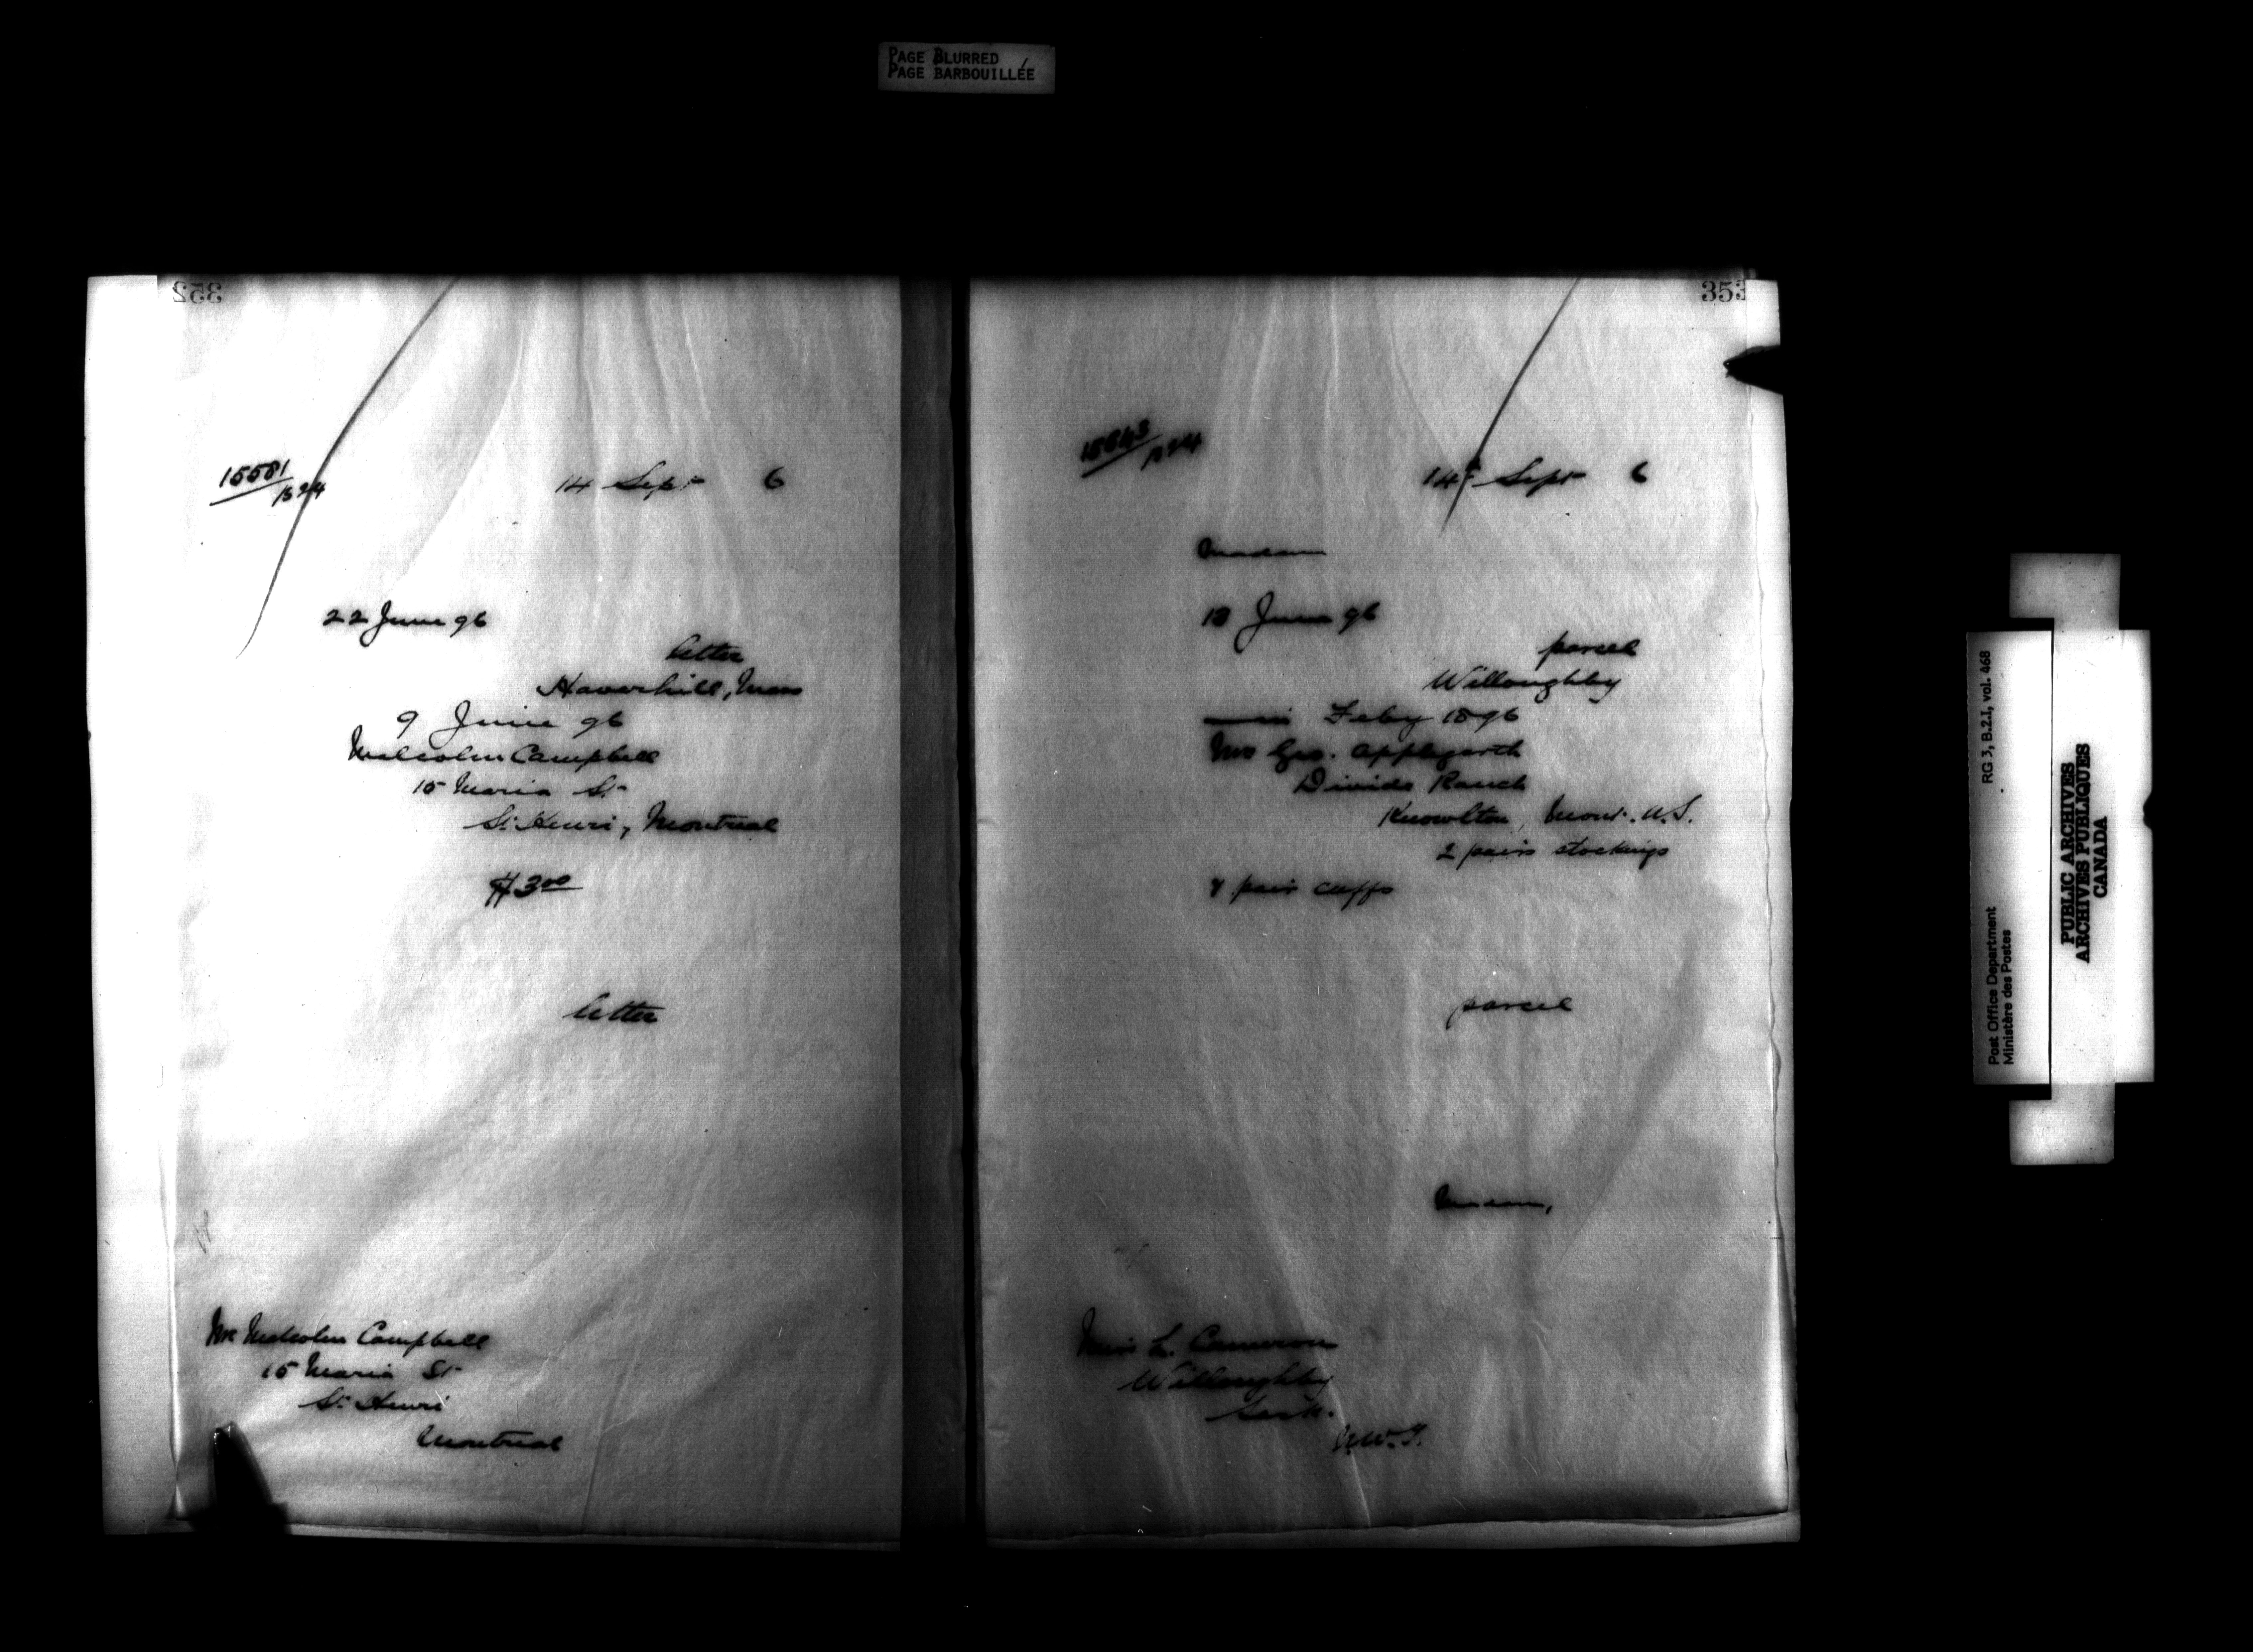 PAGE BLURRED
PAGE BARBOUILLÉE
352
15581
1324
14 Sept 6
22 June 96
letter
Haverhill, Mass
9 June 96
Malcolm Campbell
15 Maria St
St Henri, Montreal
$3.00
letter
Mr Malcolm Campbell
15 Maria St
St Henri
Montreal
353
14th Sept 6
Madam
18 June 96
parcel
Willoughby
in Feby 1896
Mrs Geo. Applegarth
Divide Ranch
Knowlton, Mont. U.S.
2 pairs stockings
pair cuffs
parcel
Madam,
Miss L. Cameron
Willoughby
Sask.
N.W.T.
RG 3, B.2.I, vol. 468
Post Office Department
Ministère des Postes
PUBLIC ARCHIVES
ARCHIVES PUBLIQUES
CANADA